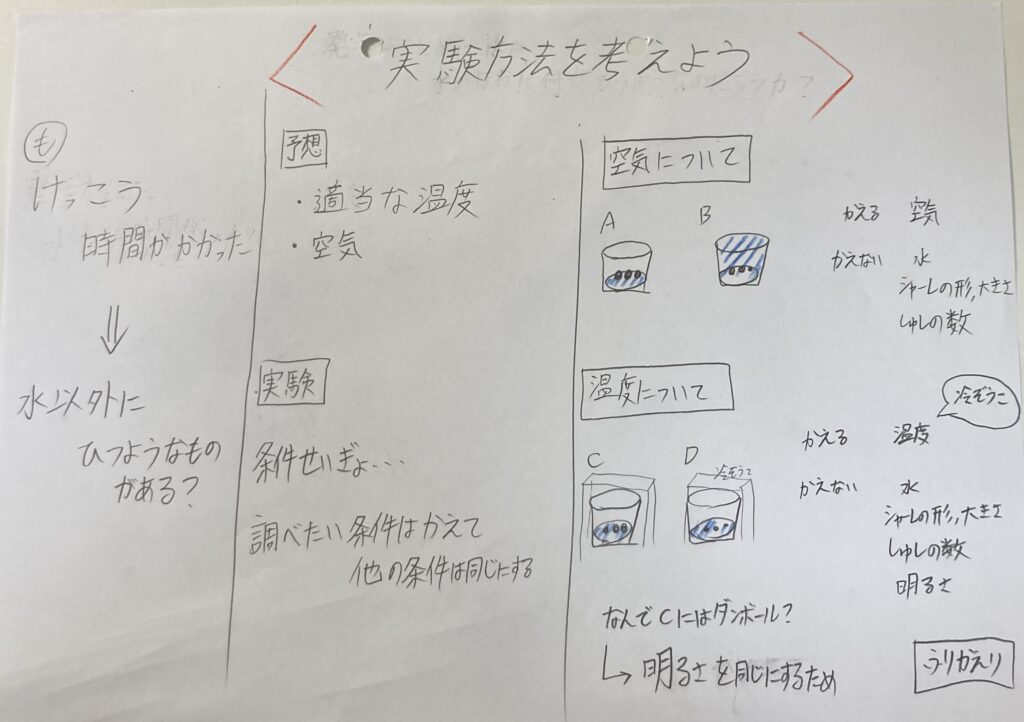 実験方法を考えよう
も
けっこう
時間がかかった
⇓
水以外に
ひつようなもの
がある？
予想
・適当な温度
・空気
実験
条件せいぎょ・・・
調べたい条件はかえて
他の条件は同じにする
空気について
A B
かえる 空気
かえない 水
シャーレの形,大きさ
しゅしの数
温度について
冷ぞうこ
C D
冷ぞうこ
かえる 温度
かえない 水
シャーレの形,大きさ
しゅしの数
明るさ
なんでCにはダンボール？
↳ 明るさを同じにするため
ふりかえり